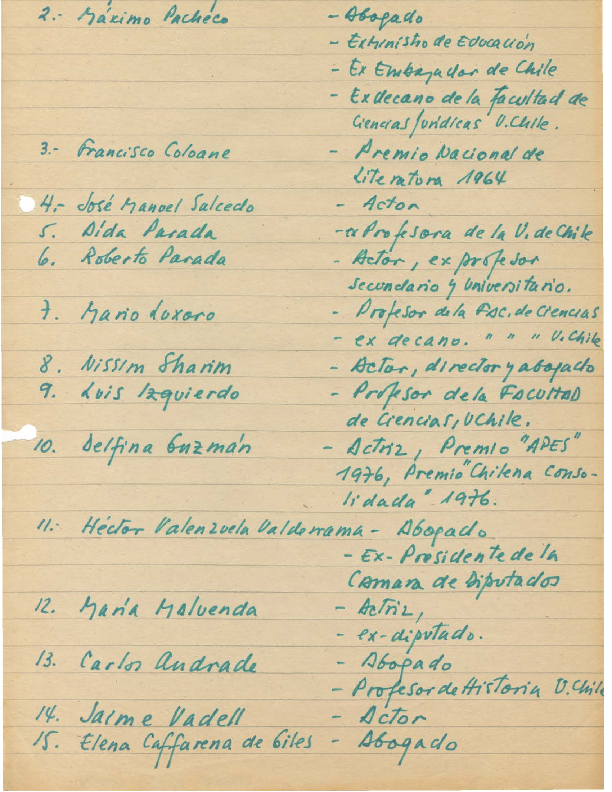 2.- Máximo Pacheco - Abogado
- Exministro de Educación
- Ex Embajador de Chile
- Exdecano de la facultad de
Ciencias Jurídicas U.Chile.
3.- Francisco Coloane - Premio Nacional de
Literatura 1964
4.- José Manuel Salcedo - Actor
5. Dída Parada - ex Profesora de la U. de Chile
6. Roberto Parada - Actor, ex profesor
secundario y universitario.
7. Mario Luxoro - Profesor de la Fac. de Ciencias
- ex decano. " " " U.Chile
8. Nissim Sharim - Actor, director y abogado
9. Luis Izquierdo - Profesor de la Facultad
de Ciencias, UChile.
10. Delfina Guzmán - Actriz, Premio "APES"
1976, Premio "Chilena Conso-
lidada" 1976.
11.- Héctor Valenzuela Valderrama - Abogado
- Ex-Presidente de la
Cámara de Diputados
12. María Maluenda - Actriz,
- ex-diputado.
13. Carlos Andrade - Abogado
- Profesor de Historia U.Chile
14. Jaime Vadell - Actor
15. Elena Caffarena de Giles - Abogado